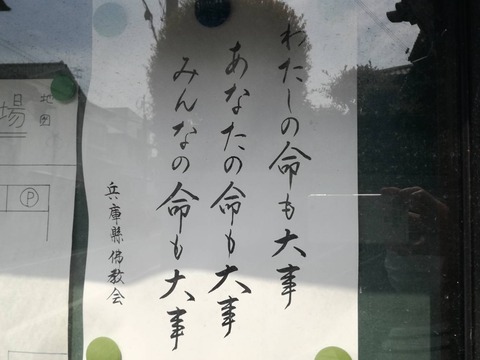 わたしの命も大事
あなたの命も大事
みんなの命も大事
兵庫縣佛教会
地図
場
P